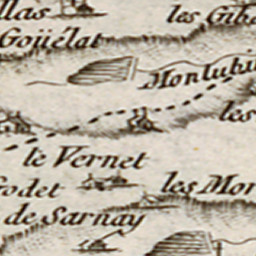 llas
les Giba
Goüélat
Monluhi
les
le Vernet
odet
les Mon
de Sarnay